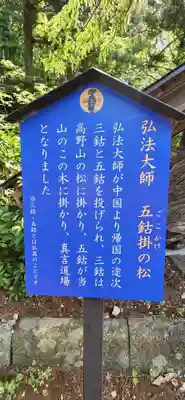 弘法大師　五鈷掛の松
ごこかけ
弘法大師が中国より帰国の途次
三鈷と五鈷を投げられ、三鈷は
高野山の松に掛かり、五鈷が当
山のこの木に掛かり、真言道場
となりました